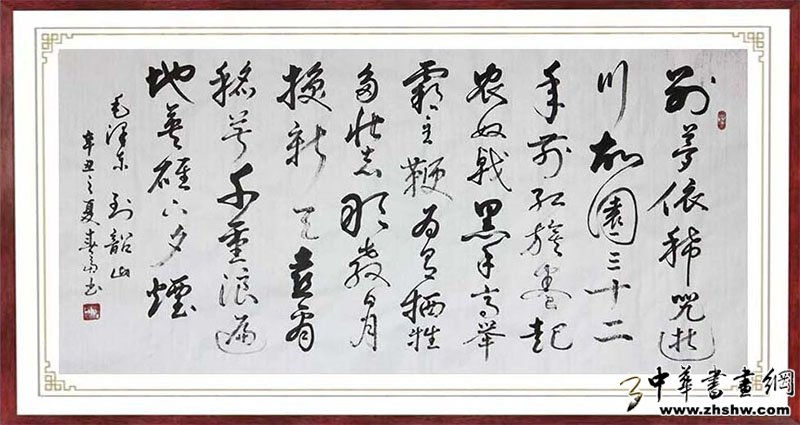 别梦依稀咒逝
川故園三十二
年前红旗卷起
农奴戟黑手高举
霸主鞭为有牺牲
多壮志敢教日月
换新天喜看
稻菽千重浪遍
地英雄下夕煙
毛泽东到韶山
辛丑之夏春书
中華書畫網
www.zhshw.com